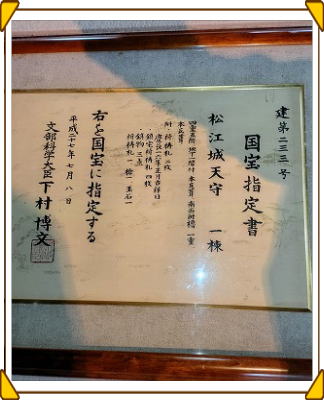 建第二三三号
国宝指定書
松江城天守 一棟
四重五階地下一階付本瓦葺 南面附櫓一重
本瓦葺
附・祈祷札 二枚
慶長一六年正月吉祥日
・鎮宅祈祷札 四枚
・鎮物 三点
祈祷札一 槍一 玉石一
右を国宝に指定する
平成二十七年七月八日
文部科学大臣 下村博文